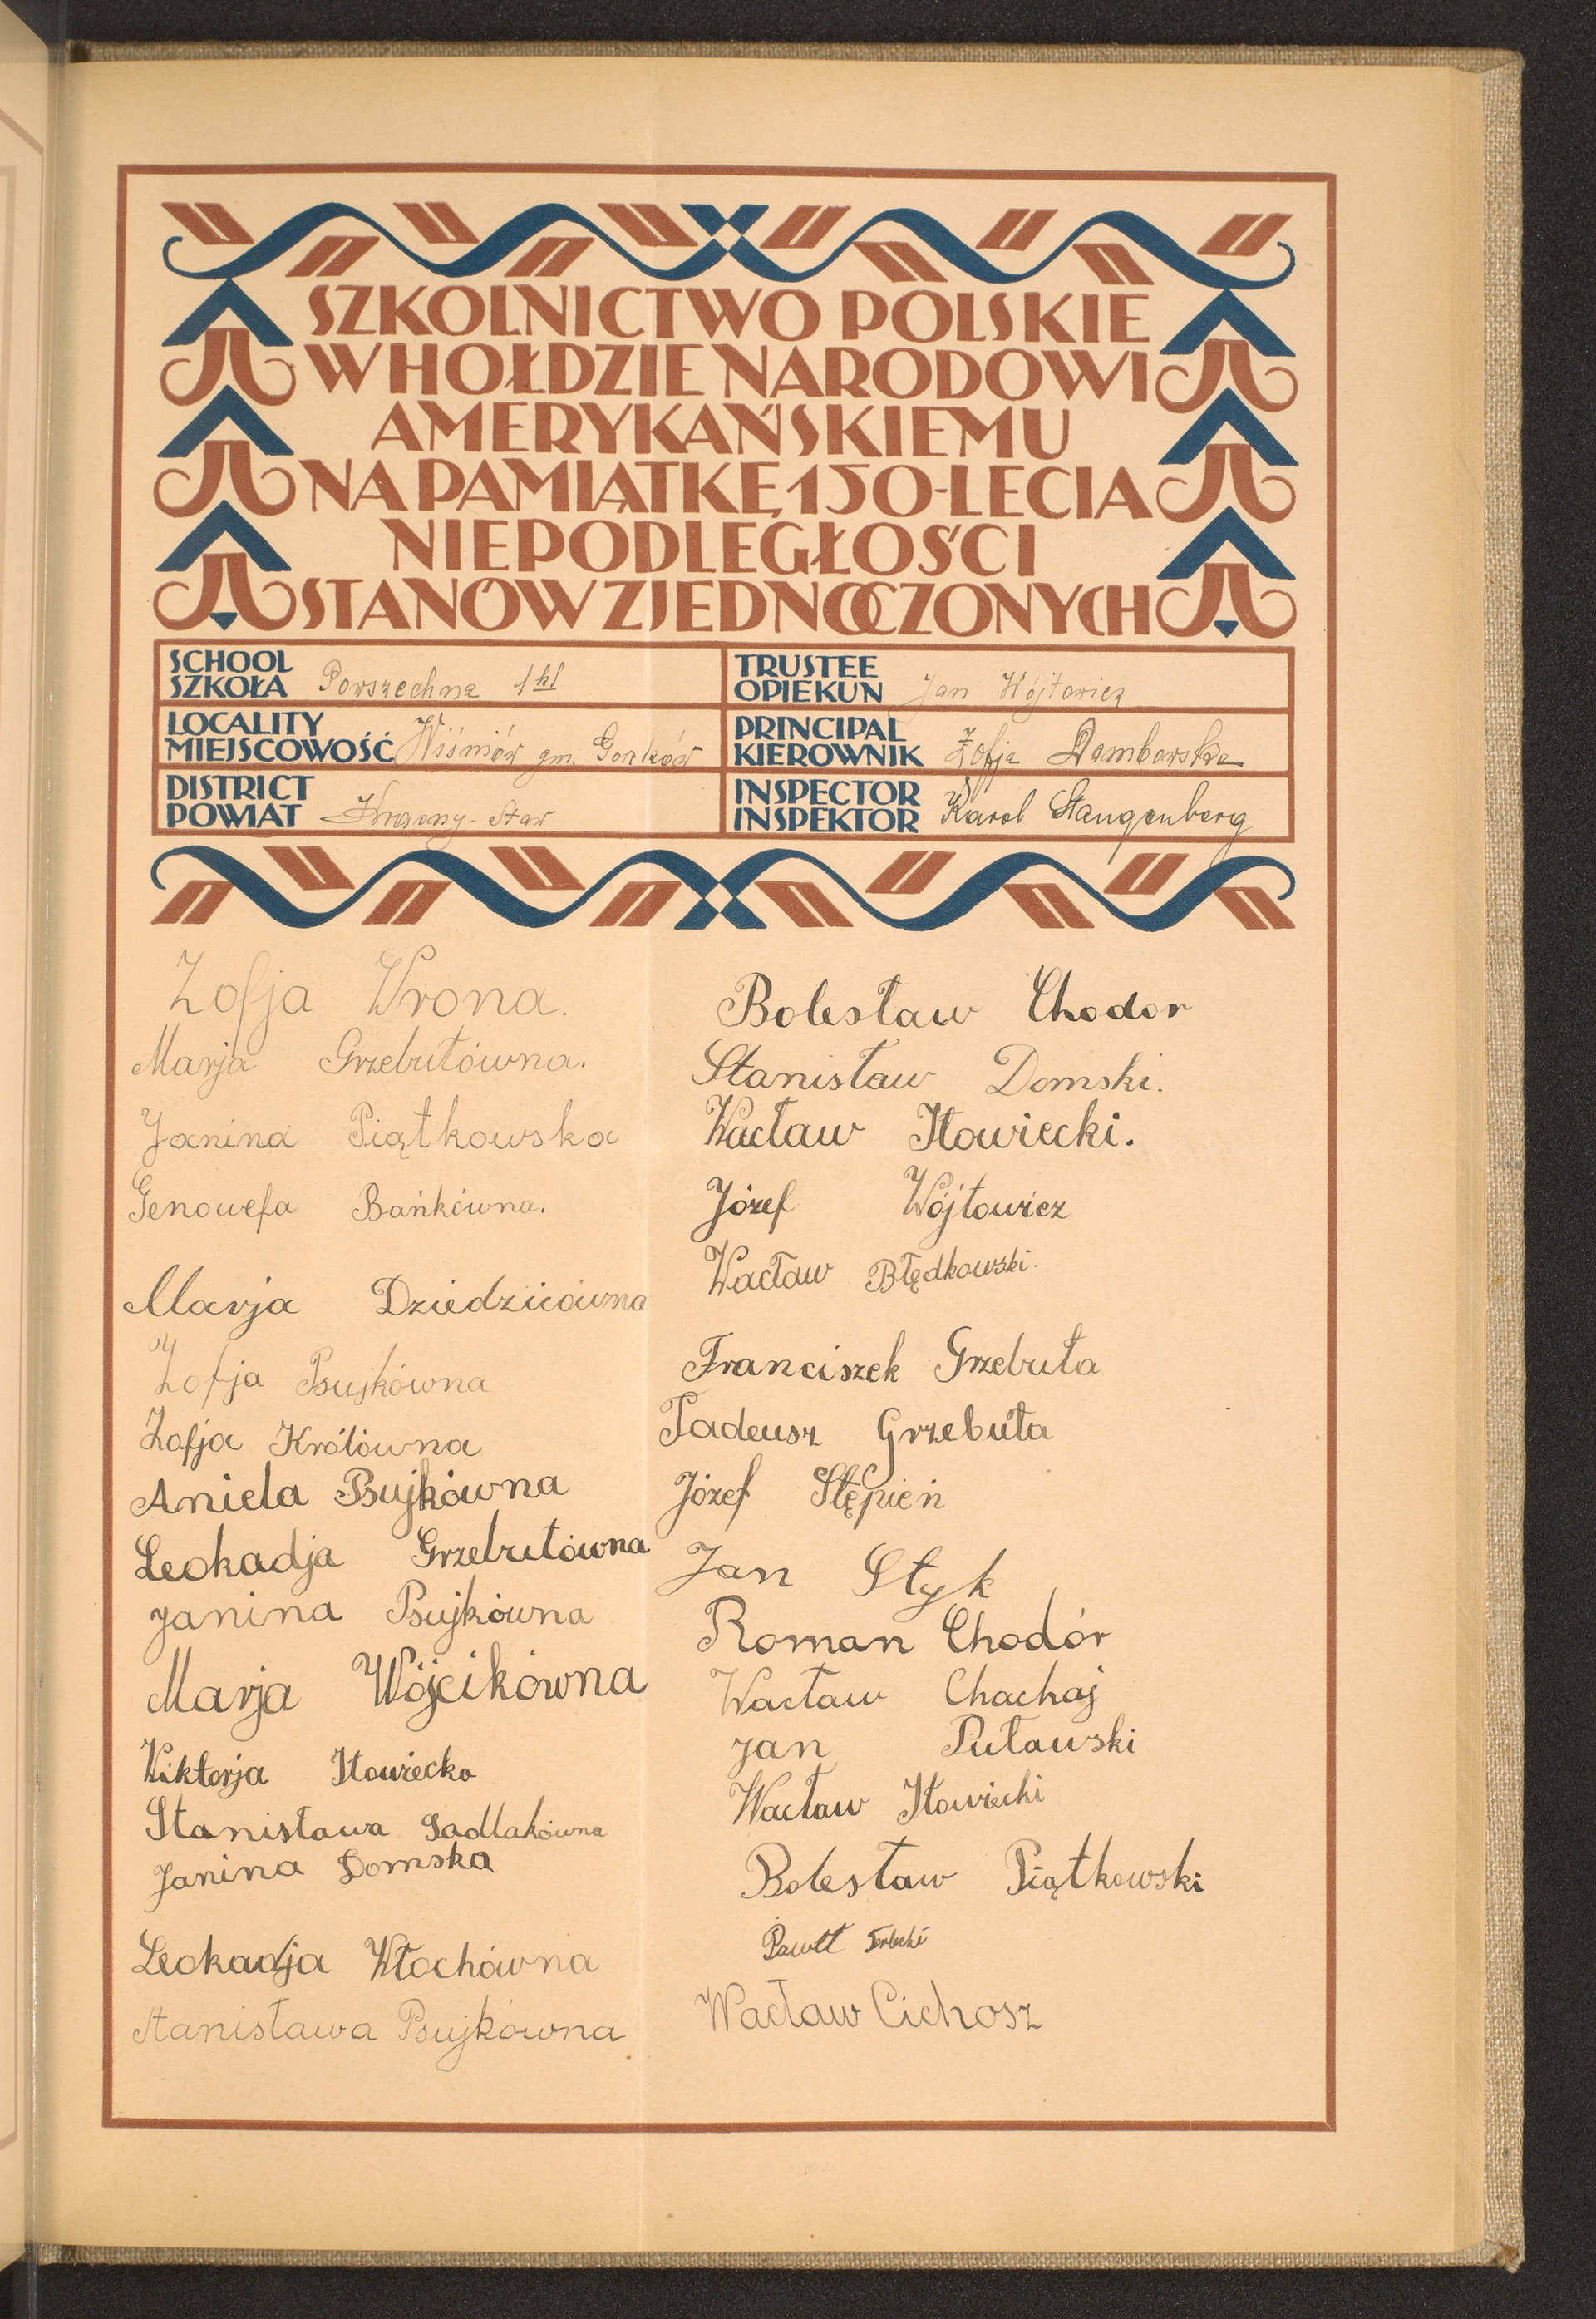 SZKOLNICTWO POLSKIE
W HOŁDZIE NARODOWI
AMERYKAŃSKIEMU
NA PAMIĄTKĘ 150-LECIA
NIEPODLEGŁOŚCI
STANÓW ZJEDNOCZONYCH
SCHOOL
SZKOŁA Powszechna 1 kl
LOCALITY
MIEJSCOWOŚĆ Wiśniów gm. Gorzków
DISTRICT
POWIAT Krasny-Staw
TRUSTEE
OPIEKUN Jan Wójtowicz
PRINCIPAL
KIEROWNIK Zofja Dambowska
INSPECTOR
INSPEKTOR Karol Stangenberg
Zofja Wrona.
Marja Grzebułówna.
Janina Piątkowska
Genowefa Bańkówna.
Marja Dziedzicówna
Zofja Psujkówna
Zofja Królówna
Aniela Psujkówna
Leokadja Grzebułówna
Janina Psujkówna
Marja Wójcikówna
Wiktorja Iłowiecka
Stanisława Sadlakówna
Janina Domska
Leokadja Włochówna
Stanisława Psujkówna
Bolesław Chodor
Stanisław Domski.
Wacław Iłowiecki.
Józef Wójtowicz
Wacław Błędkowski.
Franciszek Grzebuła
Tadeusz Grzebuła
Józef Stępień
Jan Styk
Roman Chodór
Wacław Chachaj
Jan Puławski
Wacław Iłowiecki
Bolesław Piątkowski
Paweł
Wacław Cichosz